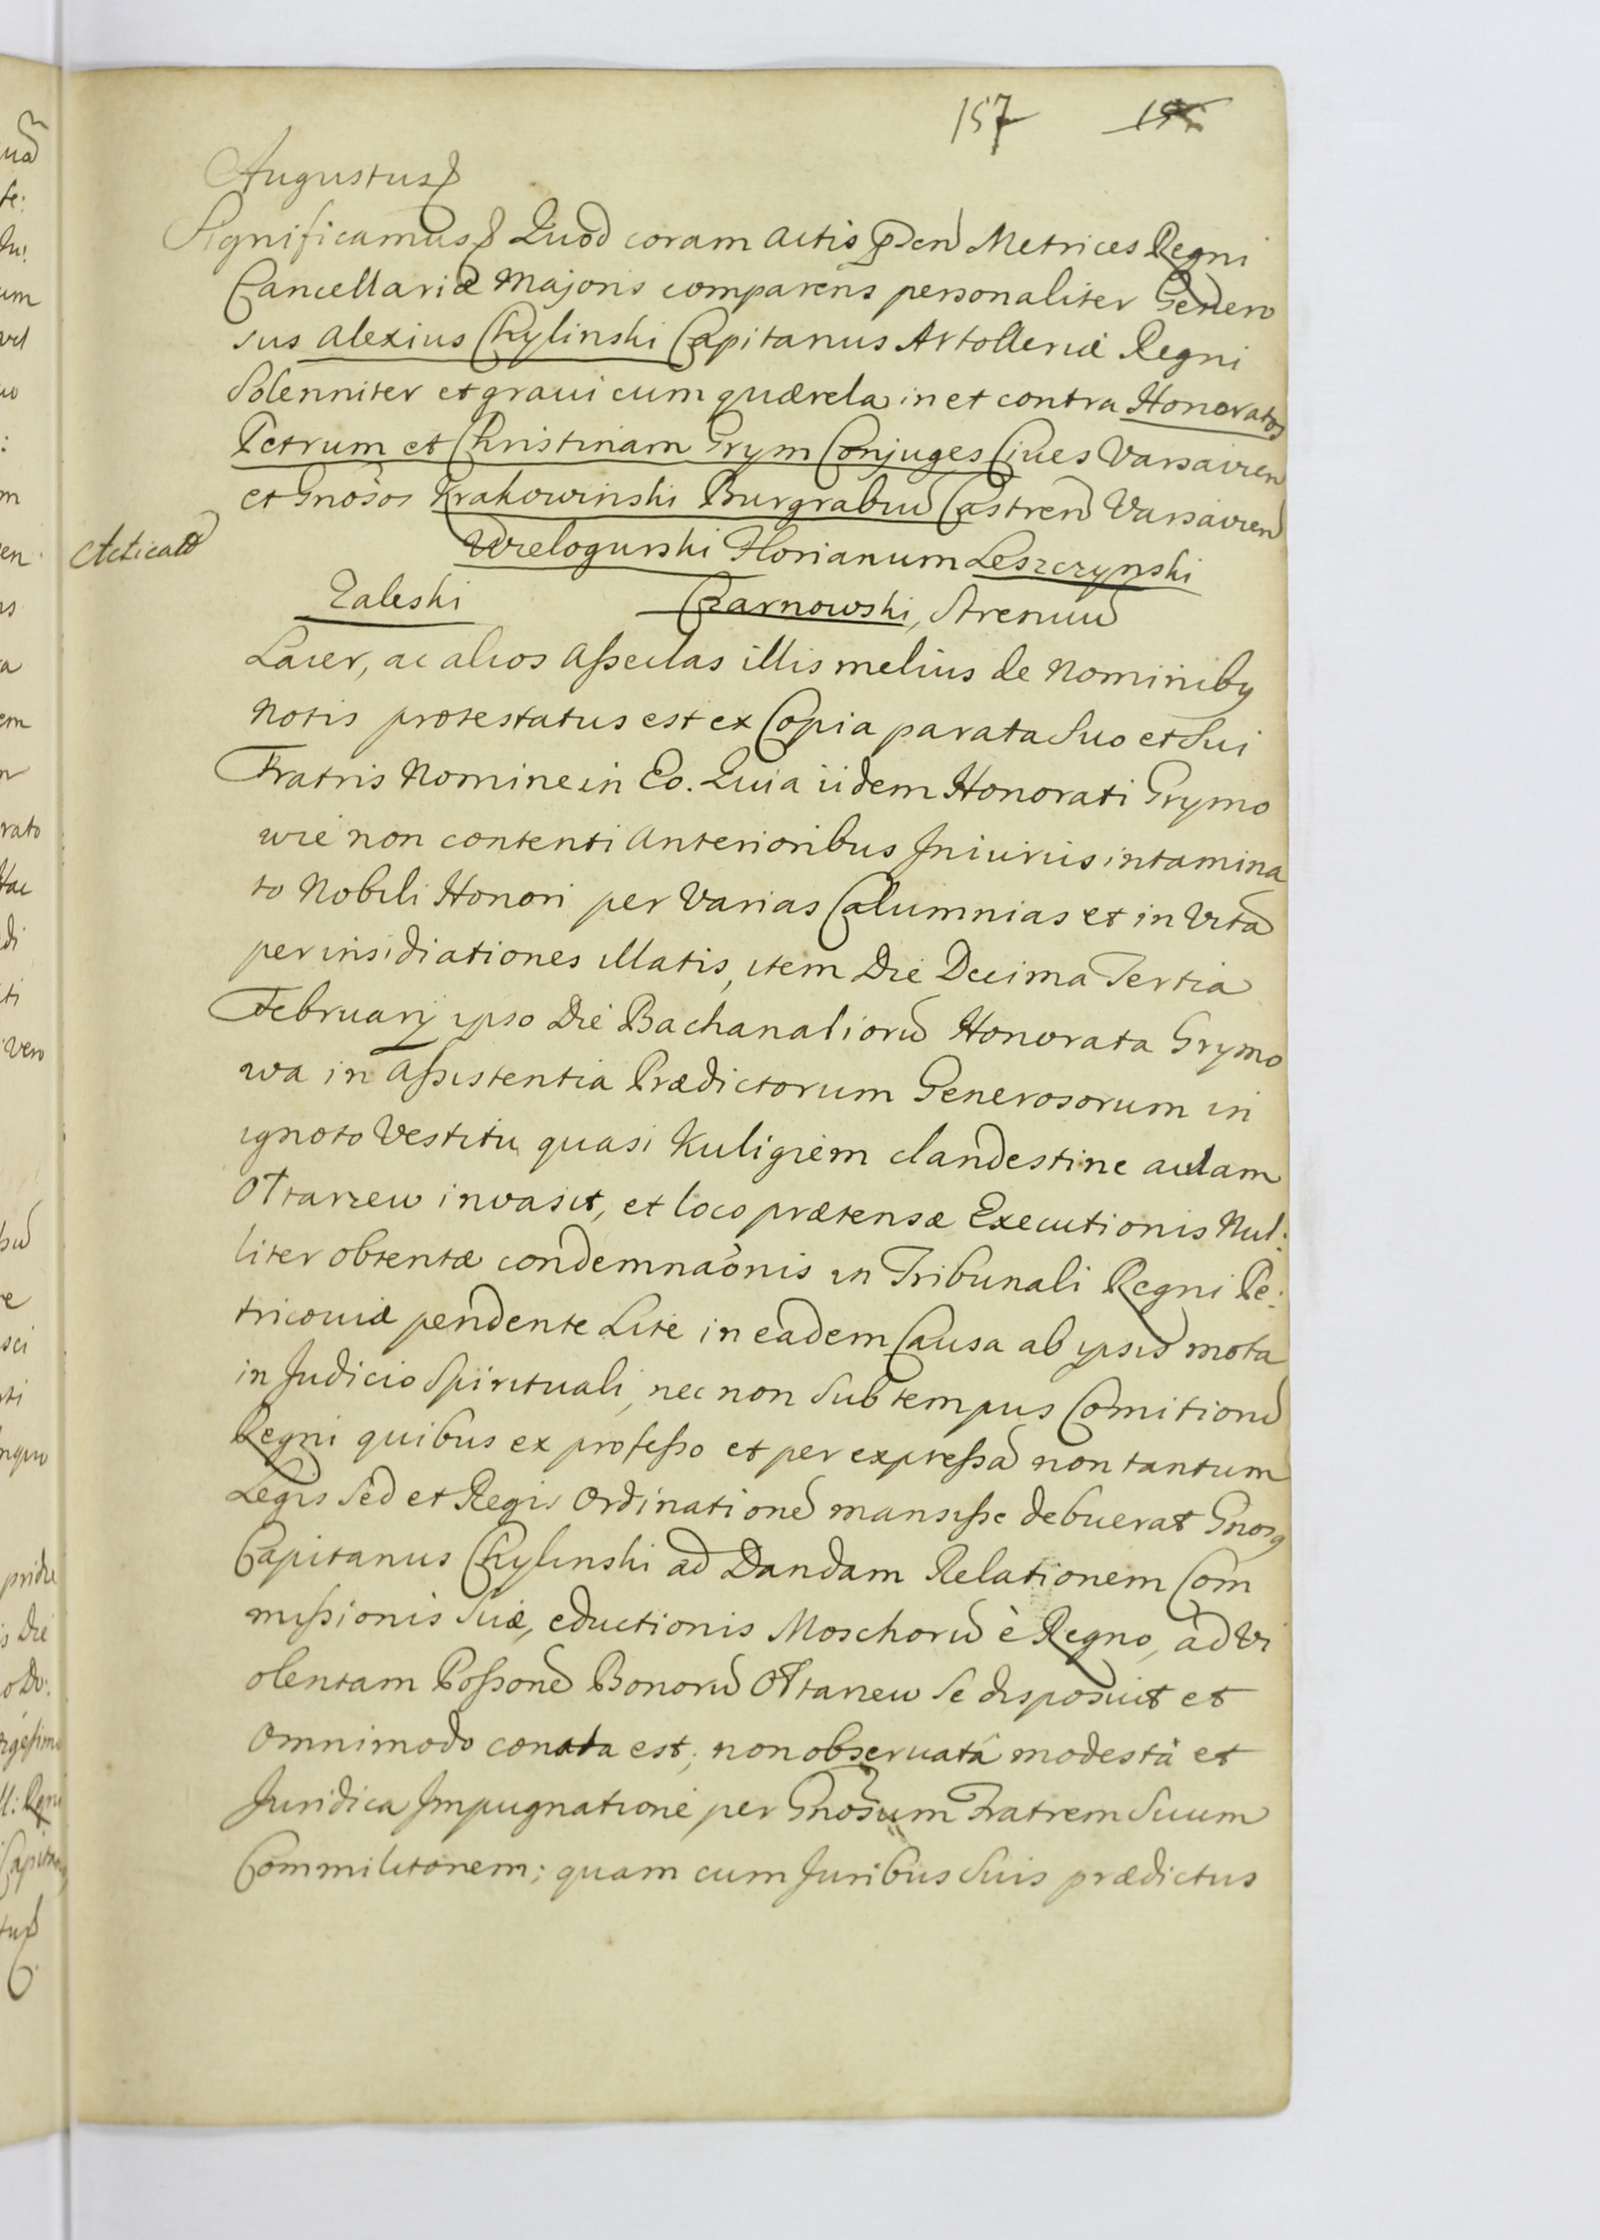 157 195
Augustus
Significamus Quod coram actis pñden Metrices Regni
Cancellariæ Majoris comparens personaliter Genero
sus Alexius Chylinski Capitanus Artolleriæ Regni
Solenniter et graui cum quærela in et contra Honoratos
Petrum et Christinam Grym Conjuges Ciues Varsavien
et Gnosos Krakowinski Burgrabiũ Castren Varsavien
Acticatõ
Wielogurski Florianum Leszczynski
Zaleski Czarnowski, Strenuũ
Lacer, ac alios Asseclas illis melius de Nominibq
Notis protestatus est ex Copia parata Suo et Sui
Fratris Nomine in Eo. Quia iidem Honorati Grymo
wie non contenti Anterioribus Iniuriis intamina
to Nobili Honori per Varias Calumnias et in Vitã
per insidiationes illatis, item Die Decima Tertia
February ipso Die Bachanaliorũ Honorata Grymo
wa in Assistentia Prædictorum Generosorum in
ignoto Vestitu quasi Kuligiem clandestine aulam
Ołtarzew invasit, et loco prætensæ Executionis Nul:
liter obtentæ condemnãonis in Tribunali Regni Pe:
tricouiæ pendente Lite in eadem Causa ab ipsis mota
in Judicio Spirituali, nec non Sub tempus Comitiorũ
Regni quibus ex professo et per expressã non tantum
Legis Sed et Regis Ordinationẽ mansisse debuerat Gnosq
Capitanus Chylinski ad Dandam Relationem Com
missionis Suæ, eductionis Moschorũ è Regno, ad Vi
olentam Possonẽ Bonorũ Ołtarzew Se disposuit et
Omnimodo conata est; non obseruatâ modestâ et
Juridica Impugnatione per Gnosum Fratrem Suum
Commilitonem; quam cum Juribus Suis prædictus